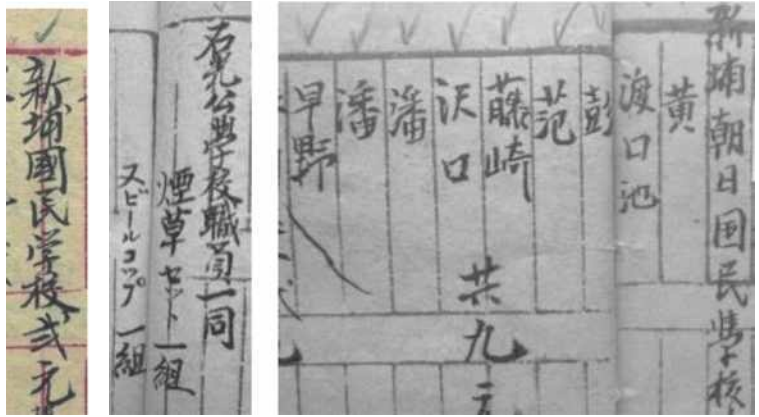 新埔國民学校 弐元
石光公学校職員一同
煙草セット一組
スビールコップ一組
新埔朝日国民学校
黄
渡口池
彭
范
藤崎
沢口
潘
潘
早野
共九元